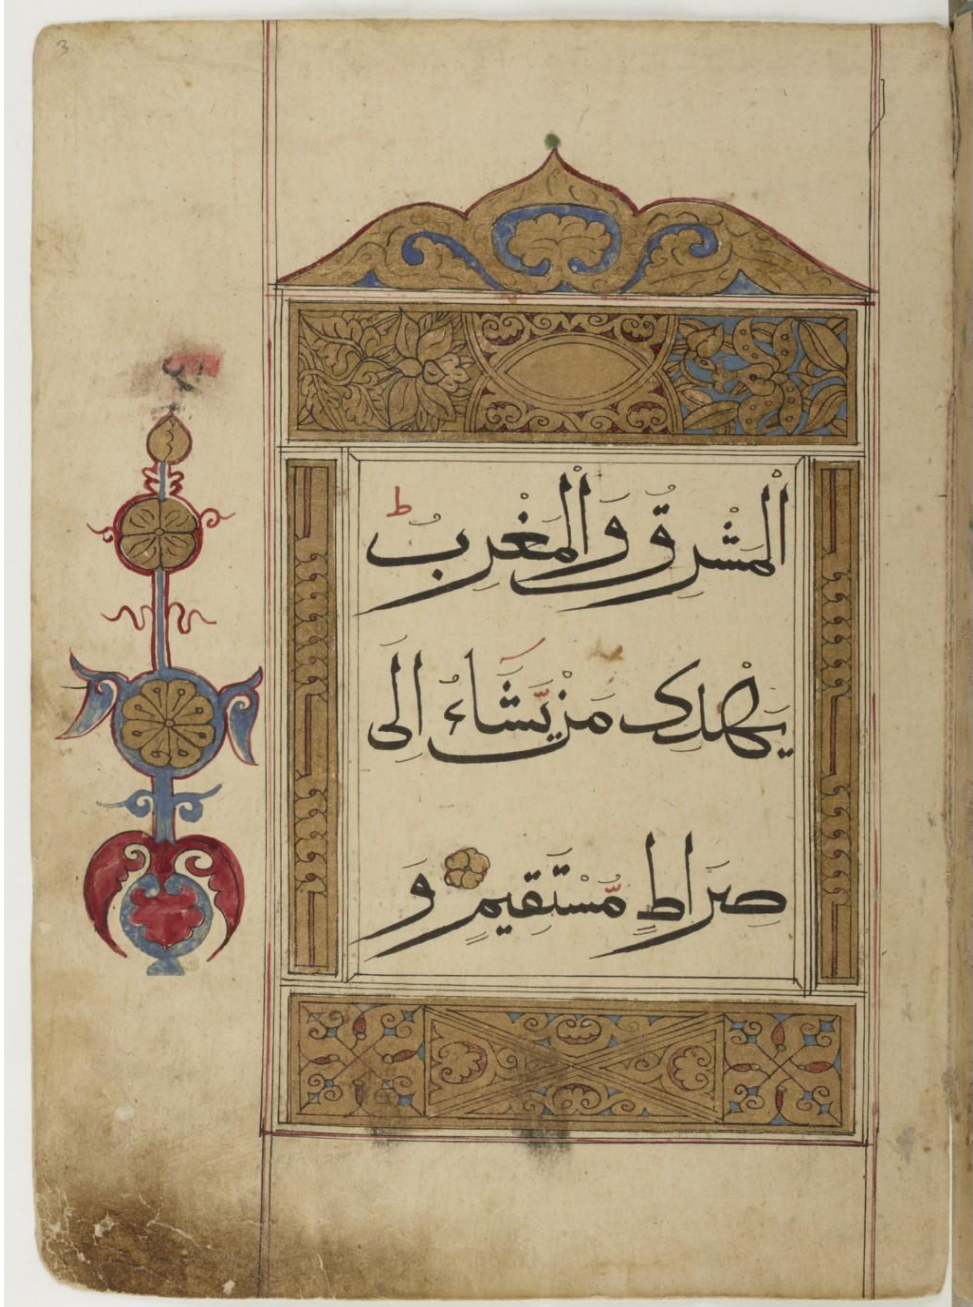 3
الْمَشْرِقُ وَالْمَغْرِبُ ط
يَهْدِى مَنْ يَّشَاءُ اِلَى
صِرَاطٍ مُّسْتَقِيمٍ وَ